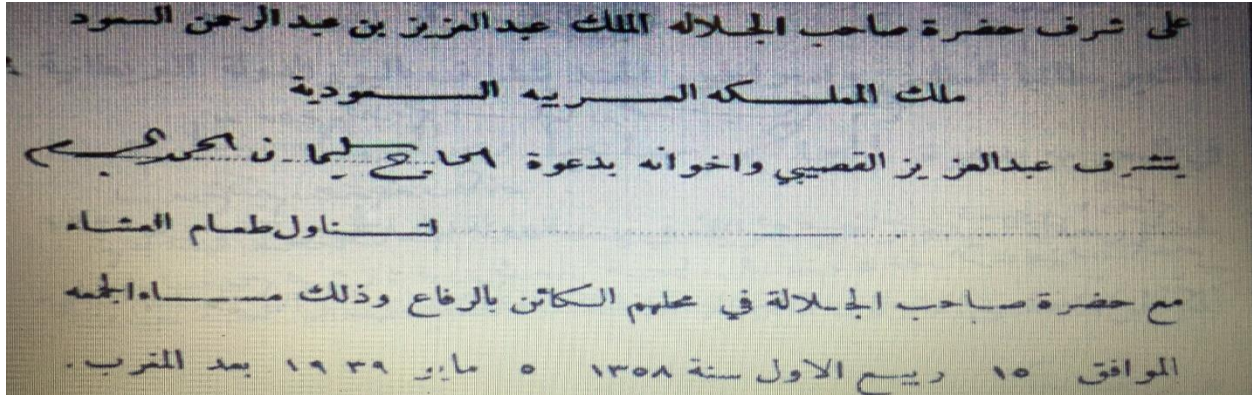 على شرف حضرة صاحب الجلاله الملك عبدالعزيز بن عبدالرحمن السعود
ملك المملسكه العسربيه السعودية
يتشرف عبدالعزيز القصيبي واخوانه بدعوة الحاج سليمان الحمد البسام
لتسناول طعام العشاء
مع حضرة صاحب الجلالة في محلهم الكائن بالرفاع وذلك مساء الجمعه
الموافق ١٥ ربيع الاول سنة ١٣٥٨ ٥ مايو ١٩٣٩ بعد المغرب .